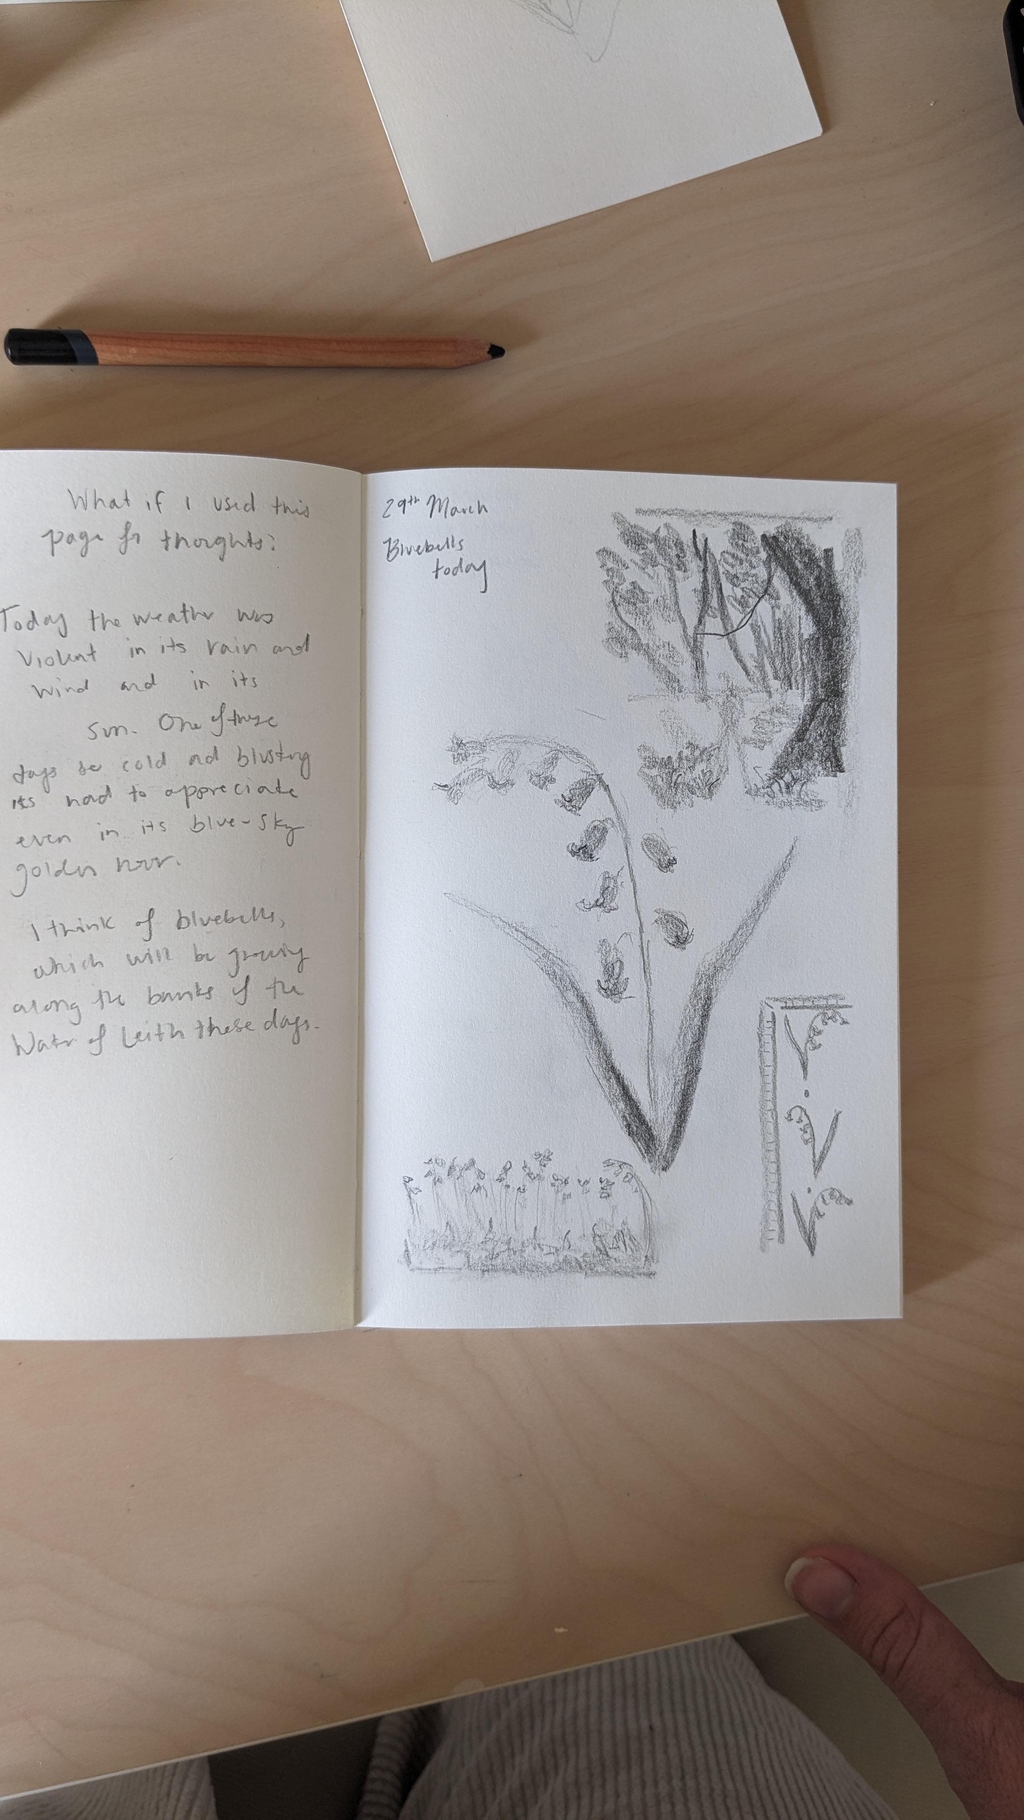 What if I used this
page for thoughts:
Today the weather was
violent in its rain and
wind and in its
sun. One of those
days so cold and blustery
its hard to appreciate
even in its blue-sky
golden hour.
I think of bluebells,
which will be growing
along the banks of the
Water of Leith these days.
29th March
Bluebells
today